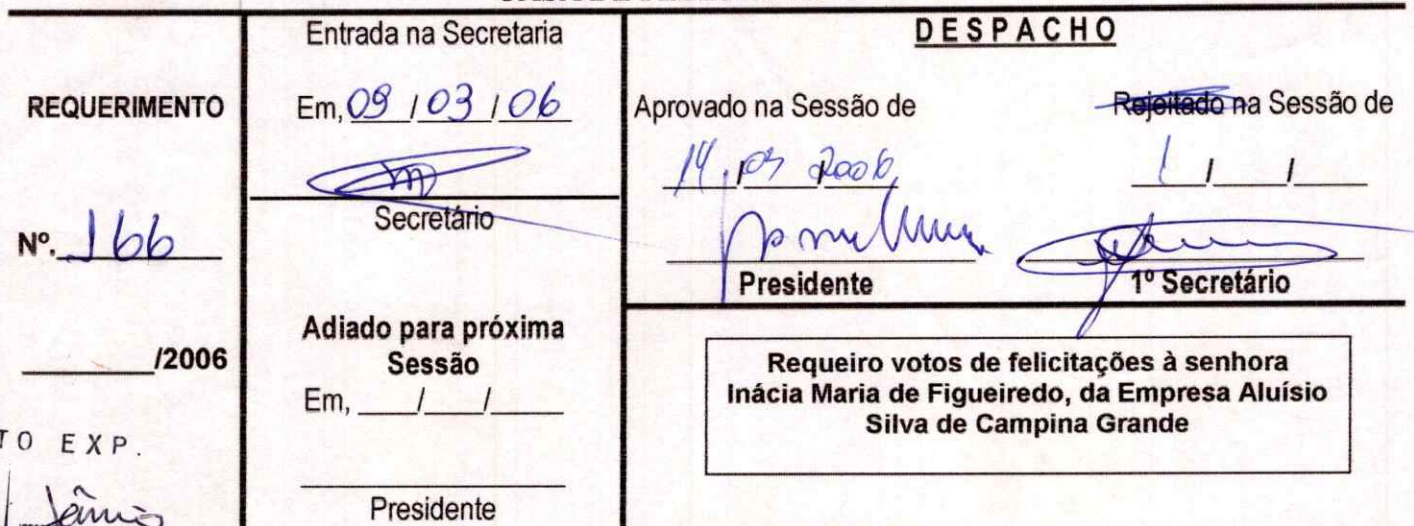 REQUERIMENTO
Nº. 166
/2006
TO EXP.
Jânio
Entrada na Secretaria
Em, 09 / 03 / 06
Secretário
Adiado para próxima
Sessão
Em, ____/____/_____
Presidente
DESPACHO
Aprovado na Sessão de
14 / 03 2006
Presidente
Rejeitado na Sessão de
____/____/____
1º Secretário
Requeiro votos de felicitações à senhora
Inácia Maria de Figueiredo, da Empresa Aluísio
Silva de Campina Grande